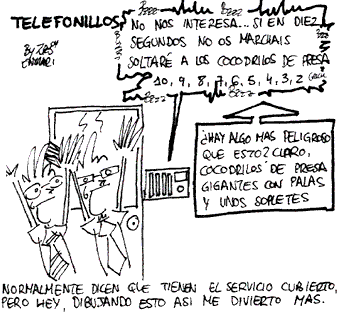 TELEFONILLOS
BY
NO NOS INTERESA... SI EN DIEZ
SEGUNDOS NO OS MARCHAIS
SOLTARÉ A LOS COCODRILOS DE PRESA
10, 9, 8, 7, 6, 5, 4, 3, 2
¿HAY ALGO MAS PELIGROSO
QUE ESTO? CLARO,
COCODRILOS DE PRESA
GIGANTES CON PALAS
Y UNOS SOPLETES
NORMALMENTE DICEN QUE TIENEN EL SERVICIO CUBIERTO,
PERO HEY, DIBUJANDO ESTO ASI ME DIVIERTO MAS.